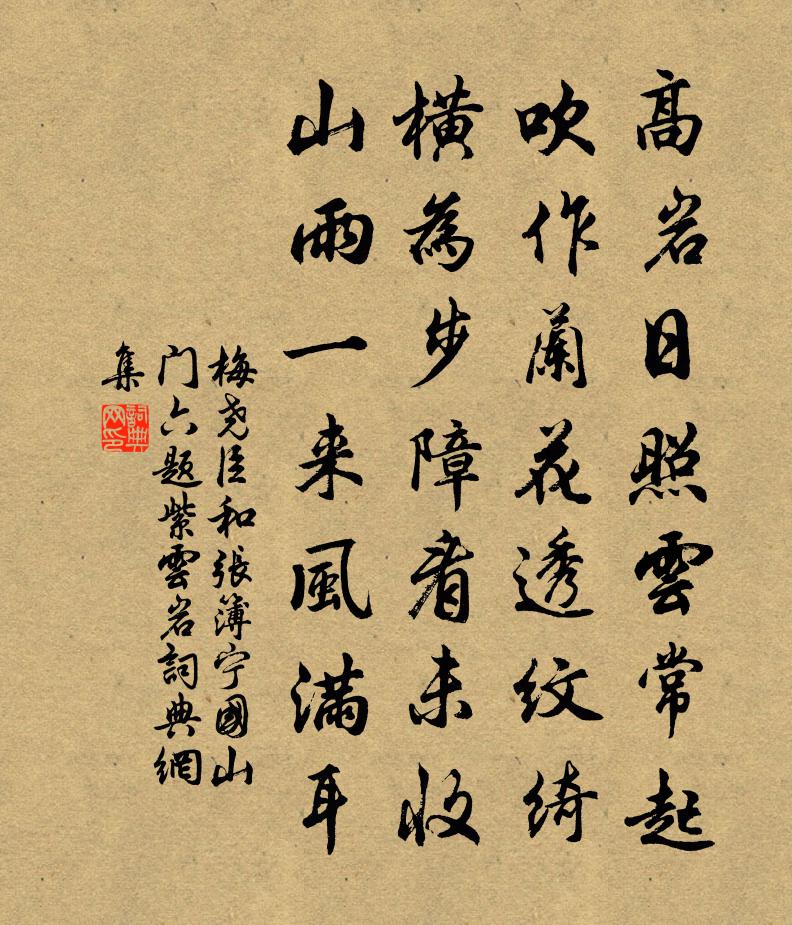 高岩日照雲常起
吹作蘭花透紋綺
橫為步障看未收
山雨一来風满耳
梅尧臣和張簿宁國山
门六题紫雲岩詞典網
集
詞典
网印